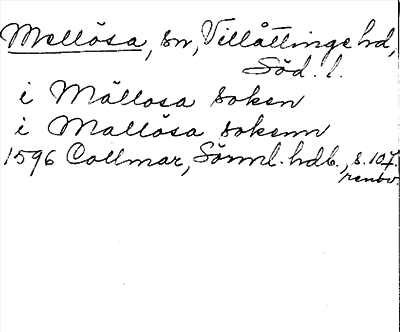 Mellösa, sn, Villåttinge hd,
Söd. l.
i Mällosa soken
i Mallösa sokenn
1596 Collmar, Sörml. hdb., s. 107.
renov.